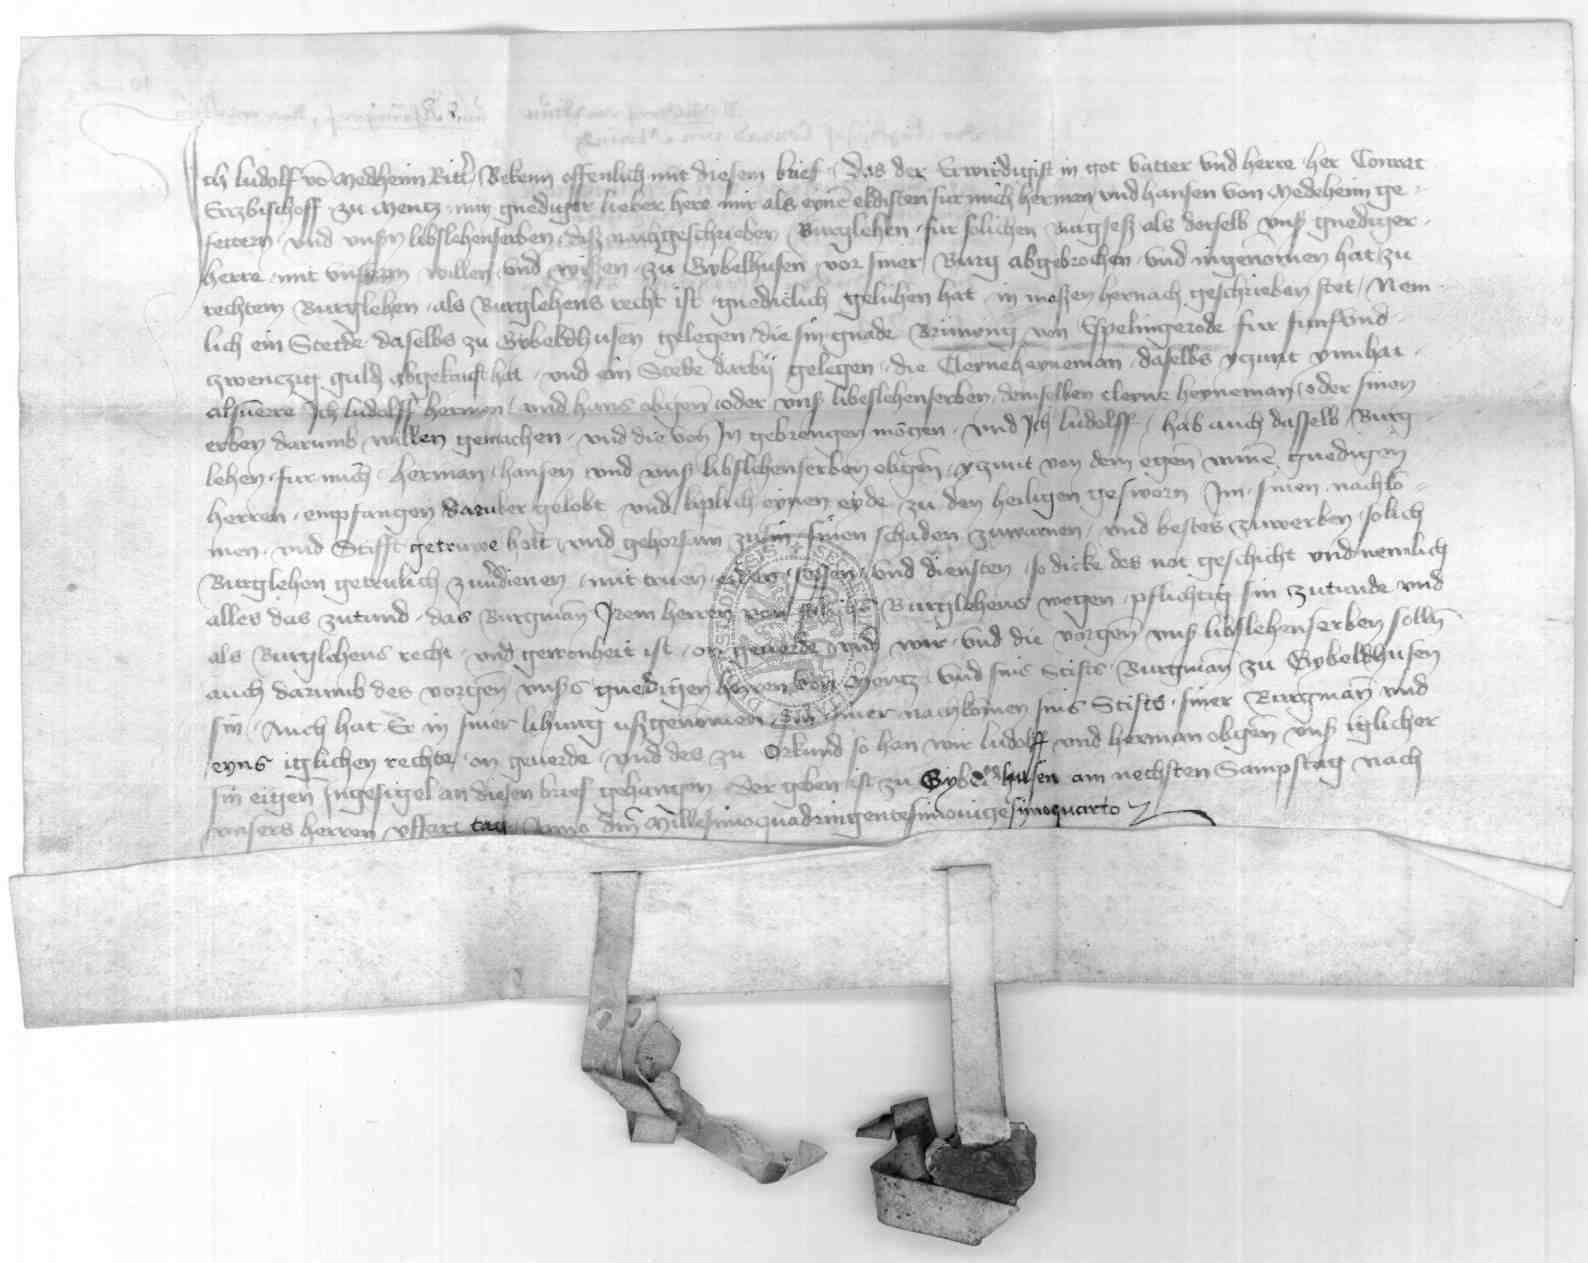 Ich ludolf vō Medheim Ritt̓ Bekenn offenlich mit diesem brief · Das der Erwirdigist in got vatter vnd herre · her Conrat
Erzbischoff · zu Mentz · myn gnediger lieber here mir als eynē eldisten fur mich hermen vnd hansen von Medeheim ge-
fettern · vnd vnsßn libslehenserben · diß nachgeschrieben Burglehen · fur solichen Burgseß als derselb vnß gnediger ·
herre · mit vnserm willen vnd wißen · zu Gybelhusen vor siner Burg abgebrochen · vnd ingenomen hat zu
rechtem Burglehen · als Burglehens recht ist gnediclich geluhen hat · in maßen hernach geschrieben stet / Nem-
lich ein Stetde daselbs zu Gybeldhusen gelegen · die sin gnade Bruning von Espelingerode fur funfvnd-
zwenczig guldn abgekauft hat · vnd ein Stede darbij gelegen · die Cleyneheyneman · daselbs yczunt ynnhat ·
alsuerre Ich ludolff herman · vnd hans obgenn̄ · oder vnß libeslehenserben / demselben cleyne heyneman / oder sinen
erben darumb willen gemachen · vnd die von In gebrengen mogen · vnd Ich ludolff / hab auch dasselb Burg-
lehen · fur mich · herman · hansen vnd vnß libslehenserben obgen̄ · yczunt von dem egen̄ mynē gnedigen
herren · empfangen daruber gelobt vnd liplich eynen eyde zu den heiligen gesworn Im · sinen nachko-
men · vnd Stifft getruwe holt · vnd gehorsam zusin · sinen schaden zuwarnen · vnd bestes zuwerben · solich
Burglehen getrulich zuu̓dienen · mit truen · eyden · seßen · vnd diensten · so dicke des not geschicht vnd nemlich
alles das zutund · das Burgman̄ Irem herren von solichs Burglehens wegen · pflichtig sin zutunde vnd
als Burglehens recht · vnd gewonheit ist · on geuerde vnd wir · vnd die vorgen̄ vnß libslehenserben solln̄
auch darumb des vorgen̄ vnßs gnedigen herren von Mentz · vnd sins Stifts Burgman̄ zu Gybeldhusen
sin · Auch hat Er in siner lihung ußgenomen sin siner nachkomen sins Stifts · siner Burgman̄ vnd
eyns iglichen rechte · on geuerde · vnd des zu Orkund so han wir ludolff vnd herman obgen̄ vnß iglicher
sin eigen̄ Ingesigel an diesen brief gehangen · Der geben ist zu Gybeldhusen am nechsten Sampstag nach
vnsers herren vffart tag Anno dn̄i Millesimoquadringentesimouigesimoquarto